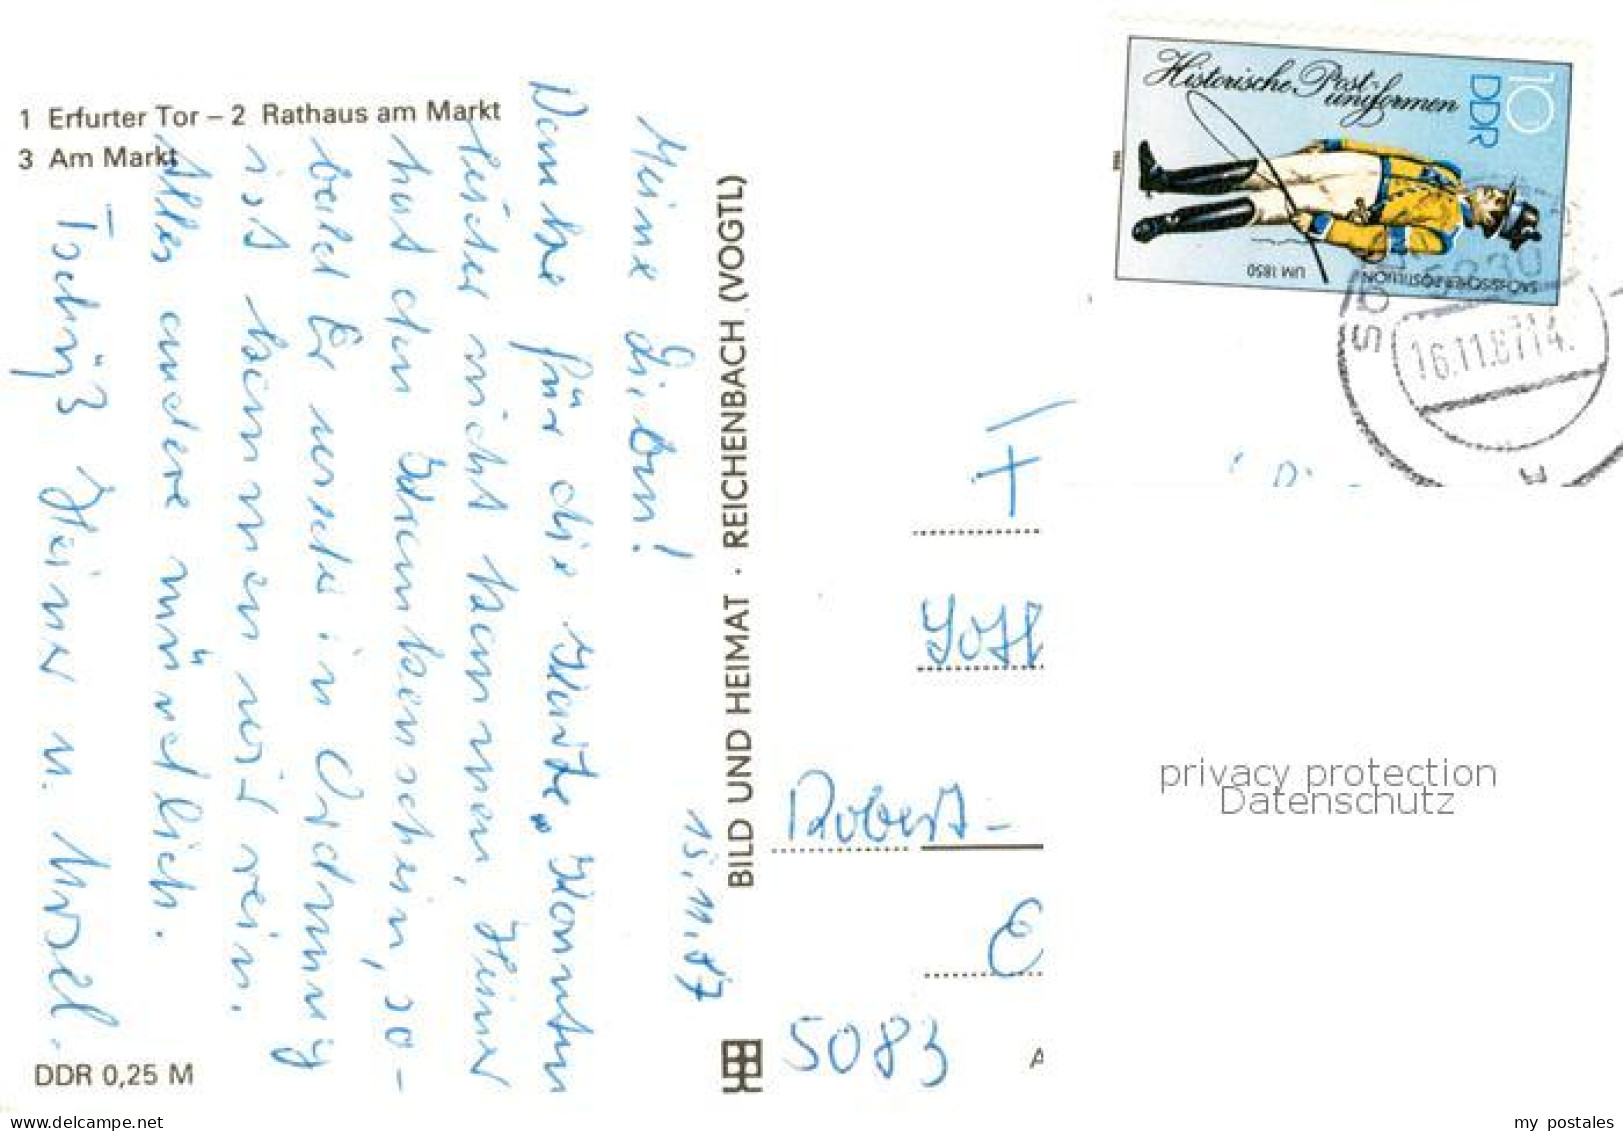 1 Erfurter Tor – 2 Rathaus am Markt
3 Am Markt
15.11.87
Meine Lieben!
Danke für die Karte. Konnten
leider nicht kommen, Heiner
hat den Krankenschein, so-
bald Er wieder in Ordnung
ist kommen wir rein.
Alles andere mündlich.
Tschüß Heiner u. Ursel.
DDR 0,25 M
BILD UND HEIMAT · REICHENBACH (VOGTL)
Historische Post-
uniformen
DDR
10
UM 1850
SÄCHSISCHER POSTILLION
16.11.87 14.
F
Robert-
E
5083
A
privacy protection
Datenschutz
my-sammelwelt.de
my postales